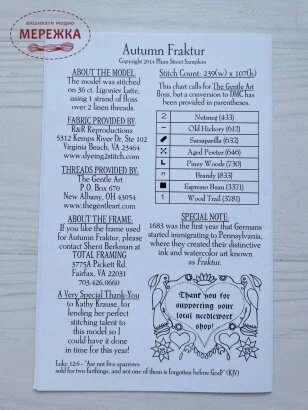 вишивати модно
МЕРЕЖКА
Autumn Fraktur
Copyright 2014 Plum Street Samplers
ABOUT THE MODEL:
The model was stitched
on 36 ct. Ligonier Latte,
using 1 strand of floss
over 2 linen threads.
FABRIC PROVIDED BY:
R&R Reproductions
5312 Kemps River Dr. Ste 102
Virginia Beach, VA 23464
www.dyeing2stitch.com
THREADS PROVIDED BY:
The Gentle Art
P.O. Box 670
New Albany, OH 43054
www.thegentleart.com
ABOUT THE FRAME:
If you like the frame used
for Autumn Fraktur, please
contact Shern Berkman at
TOTAL FRAMING
3775A Pickett Rd.
Fairfax, VA 22031
703.426.0660
A Very Special Thank-You
to Kathy Krause, for
lending her perfect
stitching talent to
this model so I
could have it done
in time for this year!
Stitch Count: 239(w) x 107(h)
This chart calls for The Gentle Art
floss, but a conversion to DMC has
been provided in parentheses.
2 Nutmeg (433)
Old Hickory (612)
Sarsaparilla (632)
Aged Pewter (646)
Piney Woods (730)
Brandy (833)
Espresso Bean (3371)
Wood Trail (3781)
SPECIAL NOTE:
1683 was the first year that Germans
started immigrating to Pennsylvania,
where they created their distinctive
ink and watercolor art known
as Fraktur.
Thank you for
supporting your
local needlework
shop!
Luke 12:6 - "Are not five sparrows
sold for two farthings, and not one of them is forgotten before God?" (KJV)